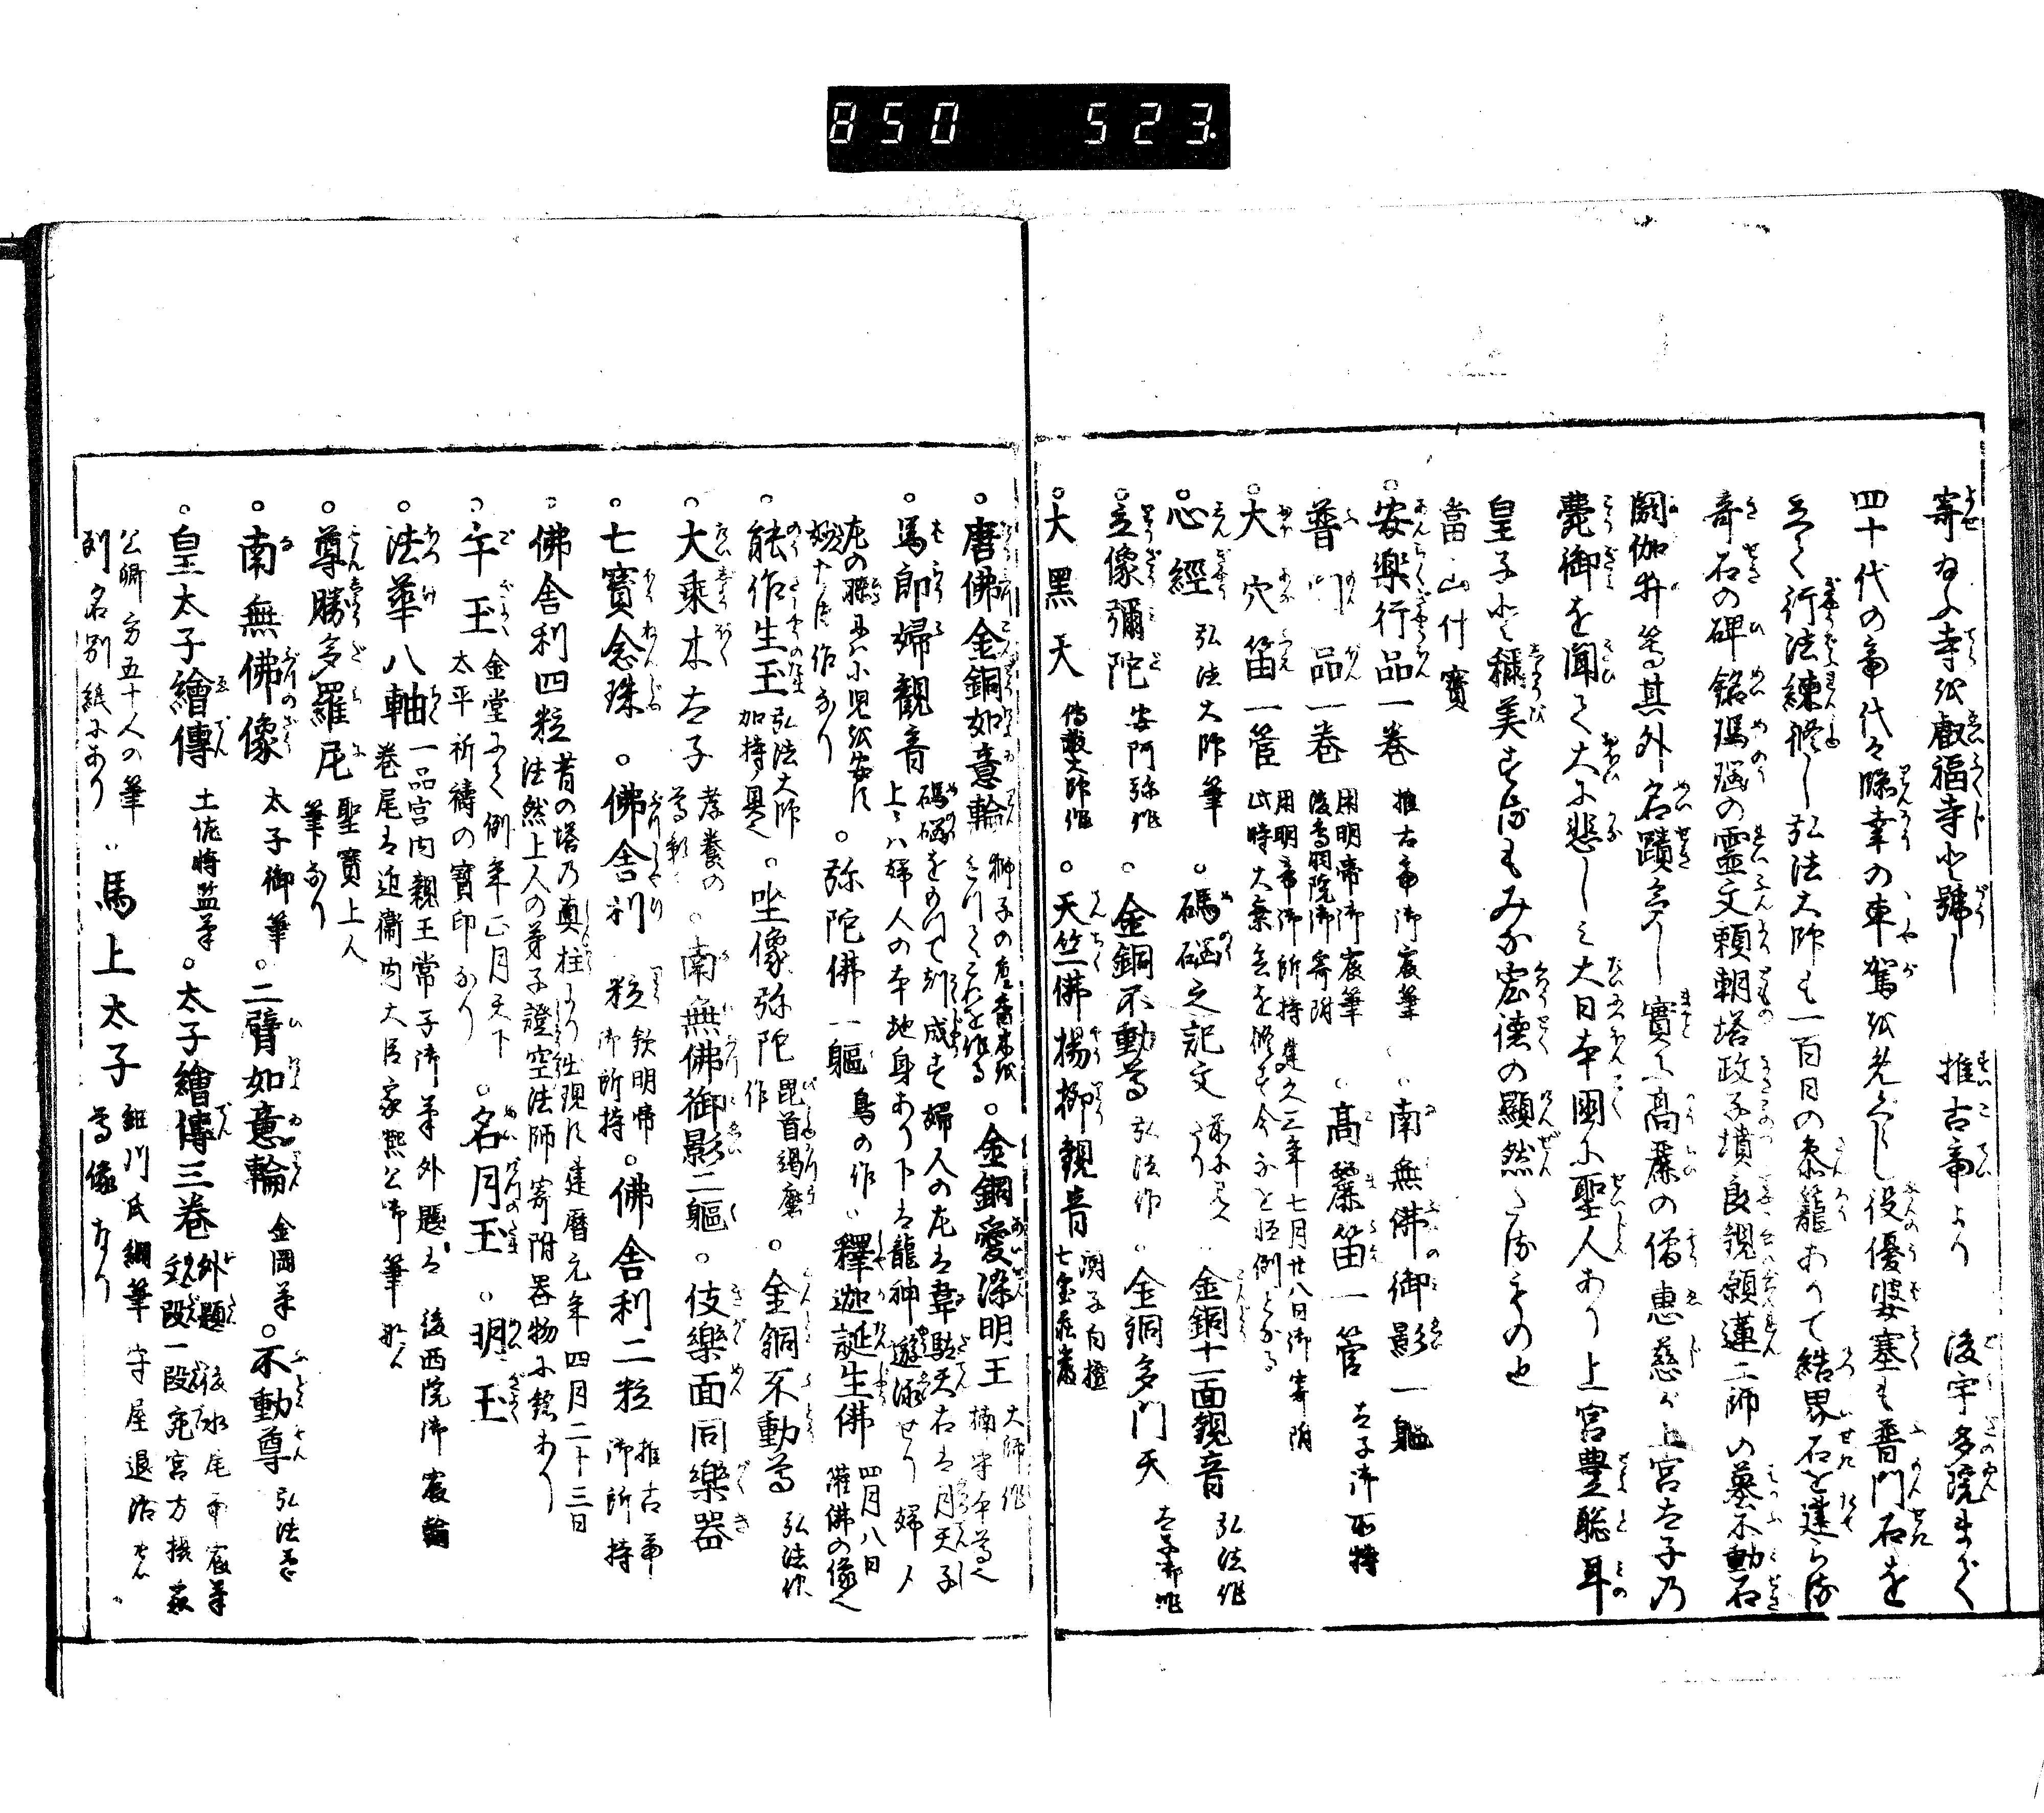 850 523
寄給ふ寺を叡福寺と號し 推古帝より 後宇多院まで
四十代の帝代々臨幸の車駕を光ぐらし役優婆塞も普門石を
立て行法練修し弘法大師も一百日の参籠ありて結界石を建らる
奇石の碑銘瑪瑙の霊文頼朝塔政子墳良観願蓮二師の墓不動石
閼伽井等其外名蹟多し實に高麗の僧惠慈が上宮太子の
薨御を聞て大に悲しみ大日本國に聖人あり上宮豊聡耳
皇子と稱美するもみな宏徳の顯然たるもの也
當山什寳
○安樂行品一巻 推古帝御宸筆 ○南無佛御影一軀
普門品一巻 用明帝御宸筆 後鳥羽院御寄附 ○高麗笛一管 太子御所持
○大穴笛一管 用明帝御所持建久三年七月廿八日御寄附 此時大乗會を修す今など恒例となる
○心經 弘法大師筆 ○碼碯之記文 ○金銅十一面観音 弘法作
○立像彌陀 安阿弥作 ○金銅不動尊 弘法作 ○金銅多門天 太子御作
○大黒天 傳教大師作 ○天竺佛楊柳観音 七宝荘嚴
○唐佛金銅如意輪 ○金銅愛染明王 大師作 楠守本尊也
○馬郎婦観音 碼碯をもつて刻成す婦人の左は韋駄天右は月天子 上は婦人の本地身あり下は龍神遊泳せり婦人
○弥陀佛一軀 鳥の作 ○釋迦誕生佛 四月八日 灌佛の像也
○能作生玉 弘法大師 加持ノ具也 ○坐像弥陀 毘首羯磨作 ○金銅不動尊 弘法作
○大乗木太子 孝養の尊影 ○南無佛御影二軀 ○伎樂面同樂器
○七寳念珠 ○佛舎利一粒 欽明帝御所持 ○佛舎利二粒 推古帝御所持
○佛舎利四粒 昔の塔乃真柱より出現す建暦元年四月二十三日 法然上人の弟子證空法師寄附器物に銘あり
○午玉 金堂にて例年正月天下 太平祈禱の寳印なり ○名月玉 ○明玉
○法華八軸 一品宮内親王常子御筆外題は 後西院御宸翰 巻尾は近衞内大臣家熙公御筆
○尊勝多羅尼 聖寳上人筆なり
○南無佛像 太子御筆 ○二臂如意輪 金岡筆 ○不動尊 弘法筆
○皇太子繪傳 土佐将監筆 ○太子繪傳三巻 外題 後水尾帝宸筆 文段一段
公卿方五十人の筆 列名別紙にあり ○馬上太子 守屋退治 尊像なり